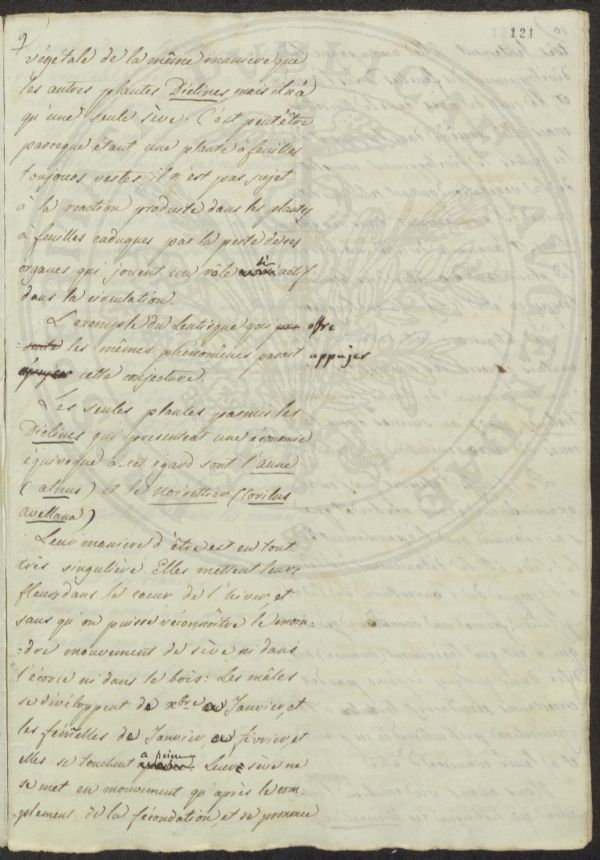 9
121
végétale de la même maniere que
les autres plantes Diclines mais il n'a
qu'une seule sève. C'est peut être
parceque étant une plante à feuilles
toujours vertes, il n'est pas sujet
à la reaction produite dans les plantes
à feuilles caduques par la perte de ces
organes qui jouent un rôle si actif
dans la circulation.
L'exemple du Lentisque qui offre
les mêmes phénomènes parait appuyer
cette conjecture.
Les seules plantes parmi les
Diclines qui presentent une économie
équivoque à cet égard sont l'aune
(alnus) et le Noisettier (Corilus
avellana)
Leur maniere d'être est en tout
très singulière. Elles mettent leurs
fleurs dans le coeur de l'hiver, et
sans qu'on puisse réconnoître le moin-
-dre mouvement de sève ni dans
l'écorce ni dans le bois: Les mâles
se développent de xbre a Janvier, et
les fémelles de Janvier a fevrier, et
elles se touchent à peine. Leur sève ne
se met en mouvement qu'après le com-
-plement de la fécondation, et se prononce